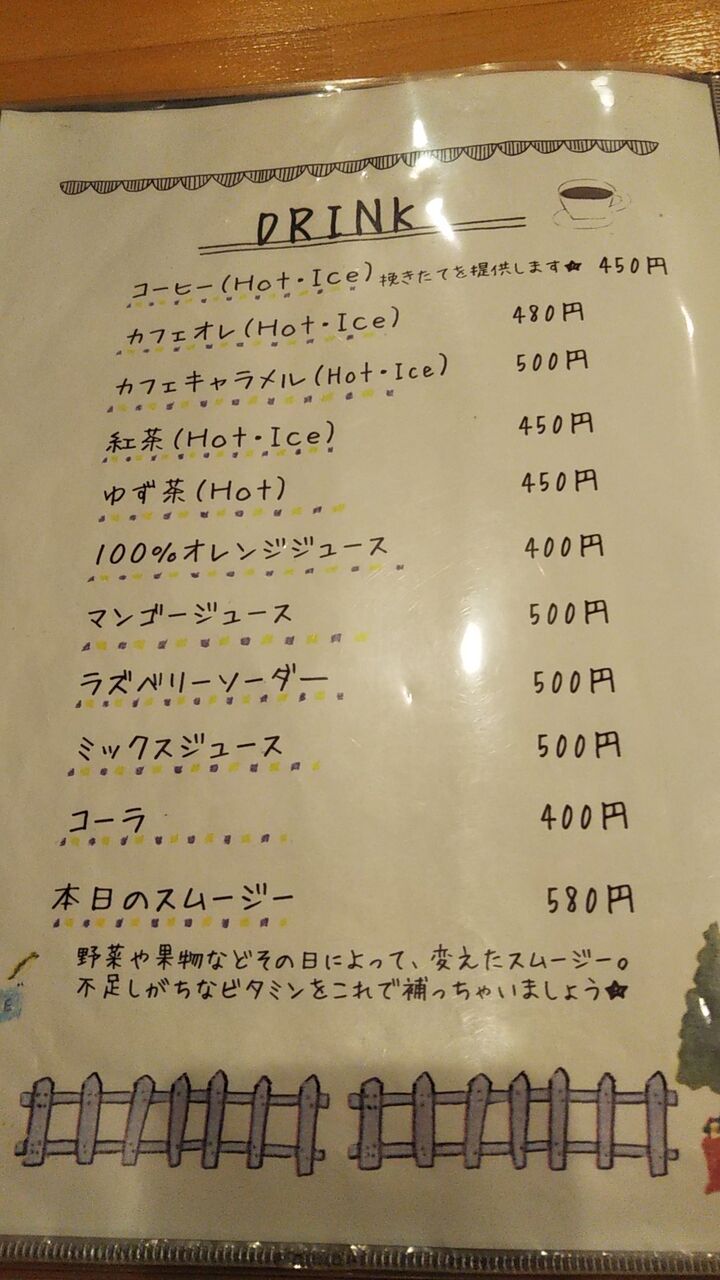 DRINK
コーヒー(Hot・Ice) 挽きたてを提供します★ 450円
カフェオレ(Hot・Ice) 480円
カフェキャラメル(Hot・Ice) 500円
紅茶(Hot・Ice) 450円
ゆず茶(Hot) 450円
100%オレンジジュース 400円
マンゴージュース 500円
ラズベリーソーダー 500円
ミックスジュース 500円
コーラ 400円
本日のスムージー 580円
野菜や果物などその日によって、変えたスムージー。
不足しがちなビタミンをこれで補っちゃいましょう★